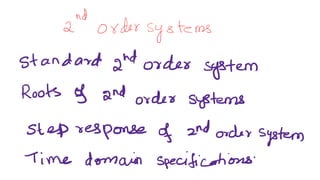 2nd order systems
Standard 2nd order system
Roots of 2nd order systems
Step response of 2nd order system
Time domain specifications.